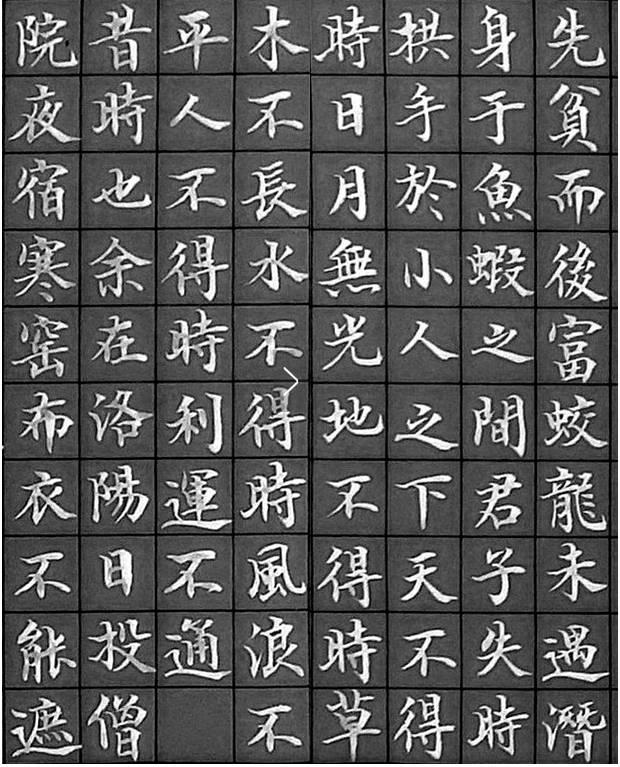 先貧而後富蛟龍未遇潛
身于魚蝦之間君子失時
拱手於小人之下天不得
時日月無光地不得時草
木不長水不得時風浪不
平人不得時利運不通
昔時也余在洛陽日投僧
院夜宿寒窑布衣不能遮